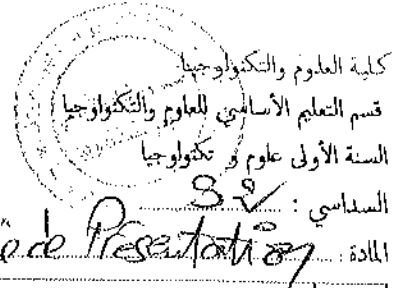 كلية العلوم والتكنولوجيا
قسم التعليم الأساسي للعلوم والتكنولوجيا
السنة الأولى علوم و تكنولوجيا
السداسي : S2
المادة : de Présentation